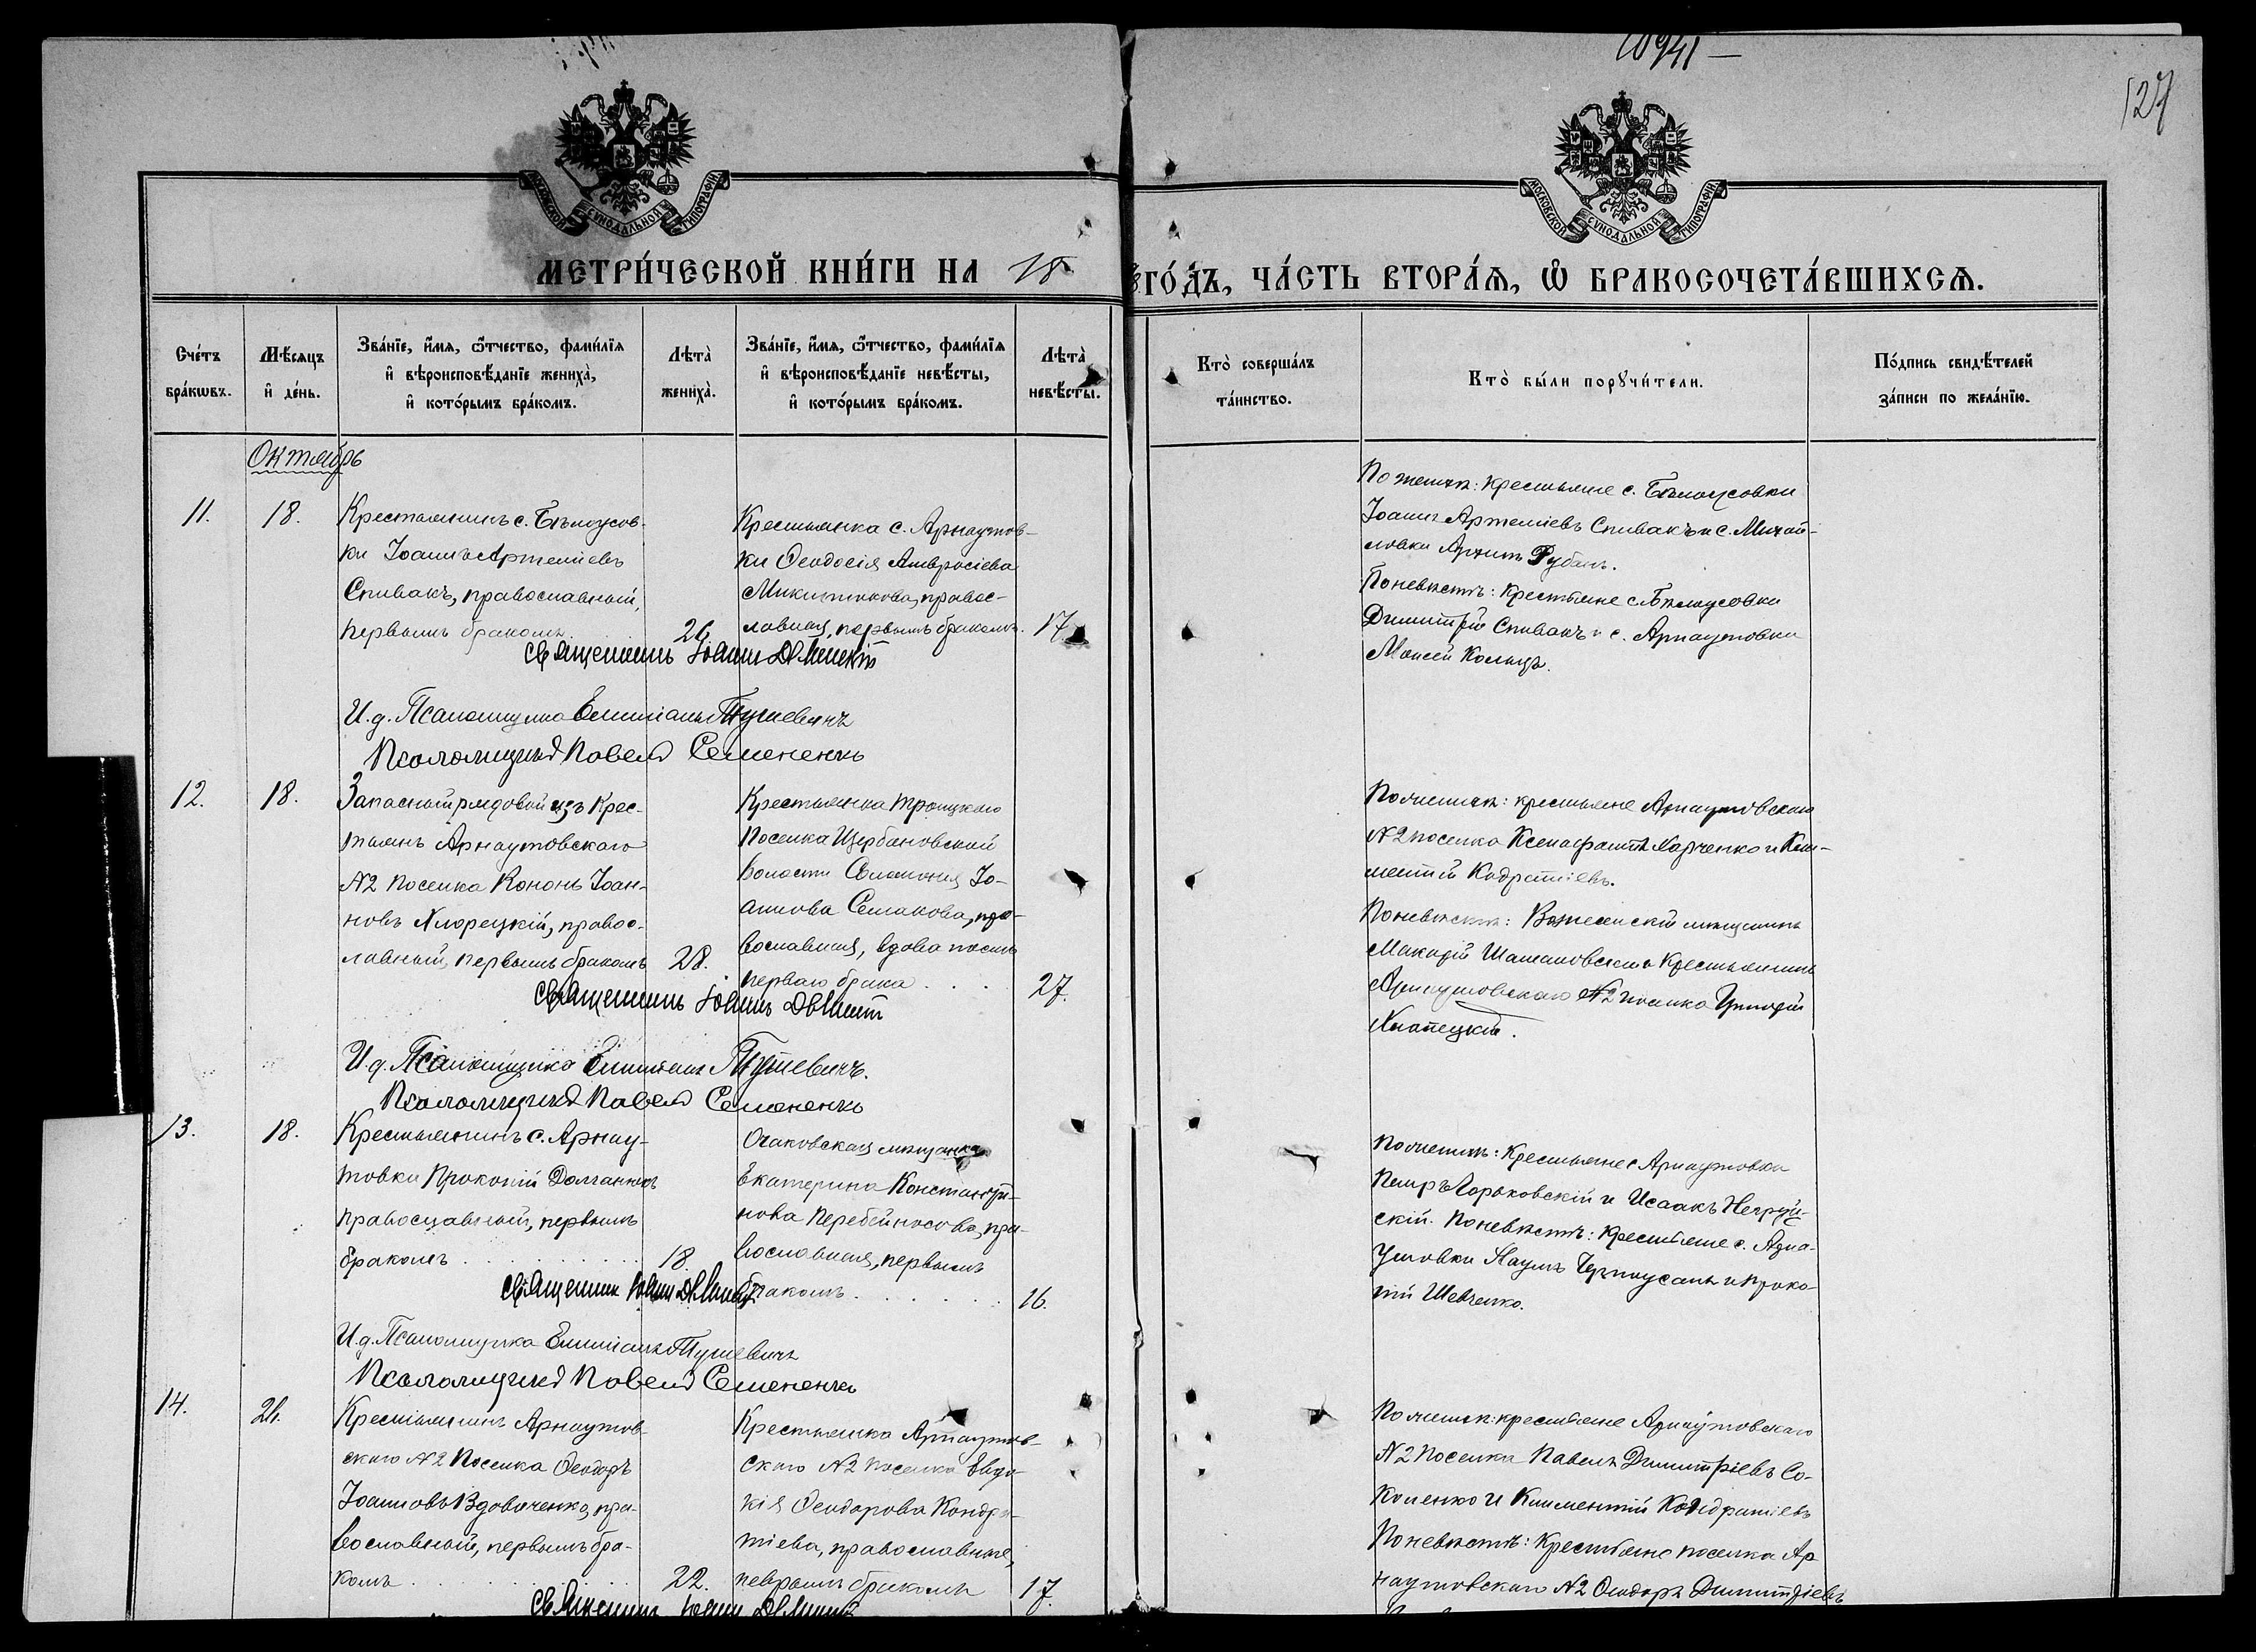 10941 —
127
МОСКОВСКОЙ СѴНОДАЛЬНОЙ ТИПОГРАФІИ
МОСКОВСКОЙ СѴНОДАЛЬНОЙ ТИПОГРАФІИ
МЕТРИ́ЧЕСКОЙ КНИ́ГИ НА 18
ГО́ДЪ, ЧА́СТЬ ВТОРА́Ѧ, Ѡ БРАКОСОЧЕТА́ВШИХСѦ.
Сче́тъ бра́кѡвъ.
Мѣ́сяцъ и де́нь.
Зва́нїе, и́мя, ѻ́тчество, фами́лїя и вѣроисповѣ́данїе жениха̀, и кото́рымъ бра́комъ.
Лѣта̀ жениха̀.
Зва́нїе, и́мя, ѻ́тчество, фами́лїя и вѣроисповѣ́данїе невѣ́сты, и кото́рымъ бра́комъ.
Лѣта̀ невѣ́сты.
Кто̀ соверша́лъ та́инство.
Кто̀ бы́ли порꙋчи́тели.
По́дпись свидѣ́телей за́писи по жела́нїю.
Октябрь
11.
18.
Крестьянинъ с. Бѣлоусов-
ки Іоаннъ Артеміевъ
Спивакъ, православный,
первымъ бракомъ
26.
Крестьянка с. Арнаутов-
ки Ѳеодосія Амвросіева
Микитюкова, правос-
лавная, первымъ бракомъ.
17.
Священникъ Іоаннъ
И. д. Псаломщика Емиліанъ
Псаломщикъ Павелъ Семененко
По женихѣ: крестьяне с. Бѣлоусовки
Іоаннъ Артеміевъ Спивакъ и с. Михай-
ловки Рубанъ.
По невѣстѣ: крестьяне с. Бѣлоусовки
Димитрій Спивакъ и с. Арнаутовки
Моисей
12.
18.
Запасный рядовой изъ крес-
тьянъ Арнаутовскаго
№2 поселка Кононъ Іоан-
новъ правос-
лавный, первымъ бракомъ
28.
Крестьянка Троицкаго
поселка Щербановской
волости Соломонія Іо-
аннова Семакова, пра-
вославная, вдова послѣ
перваго брака
27.
Священникъ Іоаннъ
И. д. Псаломщика Емиліанъ
Псаломщикъ Павелъ Семененко
По женихѣ: крестьяне Арнаутовскаго
№2 поселка Ксенофонтъ Харченко и Кли-
ментій Кодратіевъ.
По невѣстѣ: Вознесенскій мѣщанинъ
и крестьянинъ
Арнаутовскаго №2 поселка
13.
18.
Крестьянинъ с. Арнау-
товки Прокопій
православный, первымъ
бракомъ
18.
Очаковская мѣщанка
Екатерина Константи-
нова Перебейносова, пра-
вославная, первымъ
бракомъ
16.
Священникъ Іоаннъ
И. д. Псаломщика Емиліанъ
Псаломщикъ Павелъ Семененко
По женихѣ: Крестьяне с. Арнаутовки
Петръ и Исаакъ
По невѣстѣ: Крестьяне с. Арна-
утовки Наумъ Черноусанъ и Проко-
пій Шевченко.
14.
Крестьянинъ Арнаутов-
скаго №2 поселка Ѳеодоръ
Іоанновъ Вдовиченко, пра-
вославный, первымъ бра-
комъ
22.
Крестьянка Арнаутов-
скаго №2 поселка Евдо-
кія Ѳеодорова Кондра-
тіева, православная,
первымъ бракомъ
17.
Священникъ Іоаннъ
По женихѣ: крестьяне Арнаутовскаго
№2 поселка Павелъ Димитріевъ Со-
коленко и Климентій Кондратіевъ
По невѣстѣ: Крестьяне поселка Ар-
наутовскаго №2 Ѳеодоръ Димитріевъ